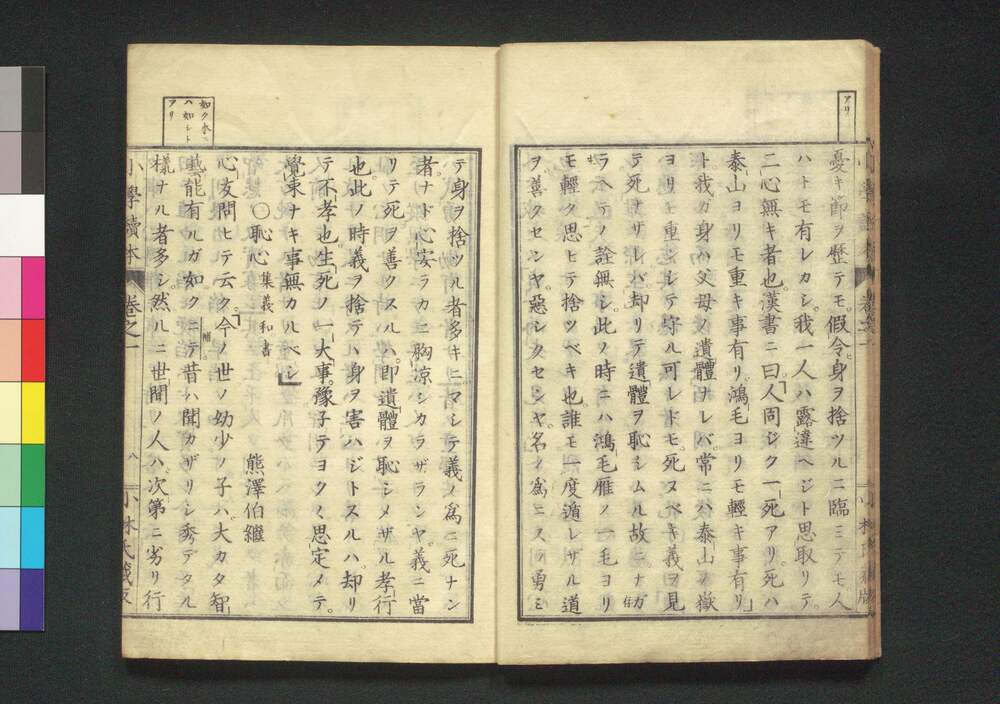 アリ
憂キ節ヲ歴テモ。假令身ヲ捨ツルニ臨ミテモ人
ハトモ有レカシ。我一人ハ露違ヘジト思取リテ。
二心無キ者也。漢書ニ曰人同ジク一死アリ。死ハ
泰山ヨリモ重キ事有リ。鴻毛ヨリモ輕キ事有リ
ト我ガ身ハ父母ノ遺體ナレバ。常ニハ泰山ノ嶽
ヨリモ重シヽテ守ル可レドモ。死ヌベキ義ヲ見
テ死ナザレバ。却リテ遺體ヲ恥シムル故ニナガ
ラヘテノ詮無シ。此ノ時ニハ鴻毛雁ノ一毛ヨリ
モ輕ク思ヒテ捨ツベキ也。誰モ一度遁レザル道
ヲ善クセンヤ。惡シクセンヤ。名ノ爲ニスル勇ミ
テ身ヲ捨ツル者多キニ。マシテ義ノ爲ニ死ナン
者。ナド心安ラカニ胸涼シカラザランヤ。義ニ當
リテ死ヲ善クスルハ。即遺體ヲ恥シメザル孝行
也。此ノ時義ヲ捨テハ身ヲ害ハジトスルハ。却リ
テ不孝也。生死ノ一大事。豫子テヨクヽ思定メテ。
覺束ナキ事無カルベシ」
○恥心 集義和書 熊澤伯繼
心友問ヒテ云ク。今ノ世ノ幼少ノ子ハ。大カタ智
藝能有ルガ如クニテ。昔ハ聞カザリシ秀デタル
樣ナル者多シ。然ルニ世間ノ人ハ。次第ニ劣リ行
如ク本ニ
ハ如シト
アリ
小學讀本 卷之一 八 小林氏藏版